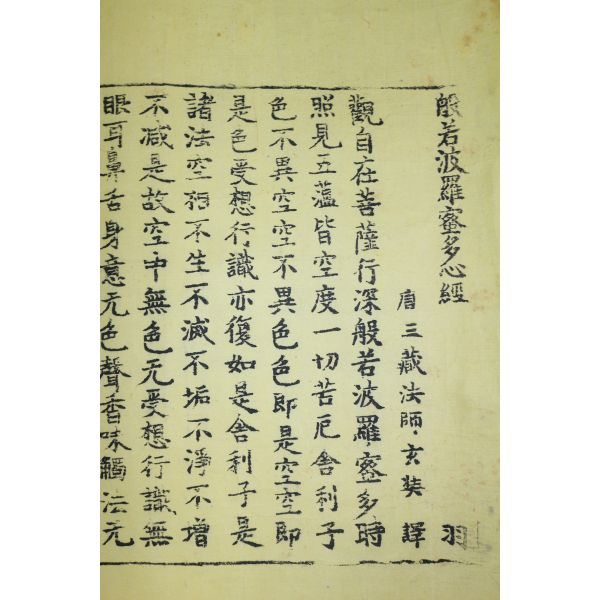 般若波羅蜜多心經 羽
唐三藏法師玄奘譯
觀自在菩薩行深般若波羅蜜多時
照見五蕴皆空度一切苦厄舍利子
色不異空空不異色色即是空空即
是色受想行識亦復如是舍利子是
諸法空相不生不滅不垢不淨不增
不减是故空中無色无受想行識無
眼耳鼻舌身意无色聲香味觸法无